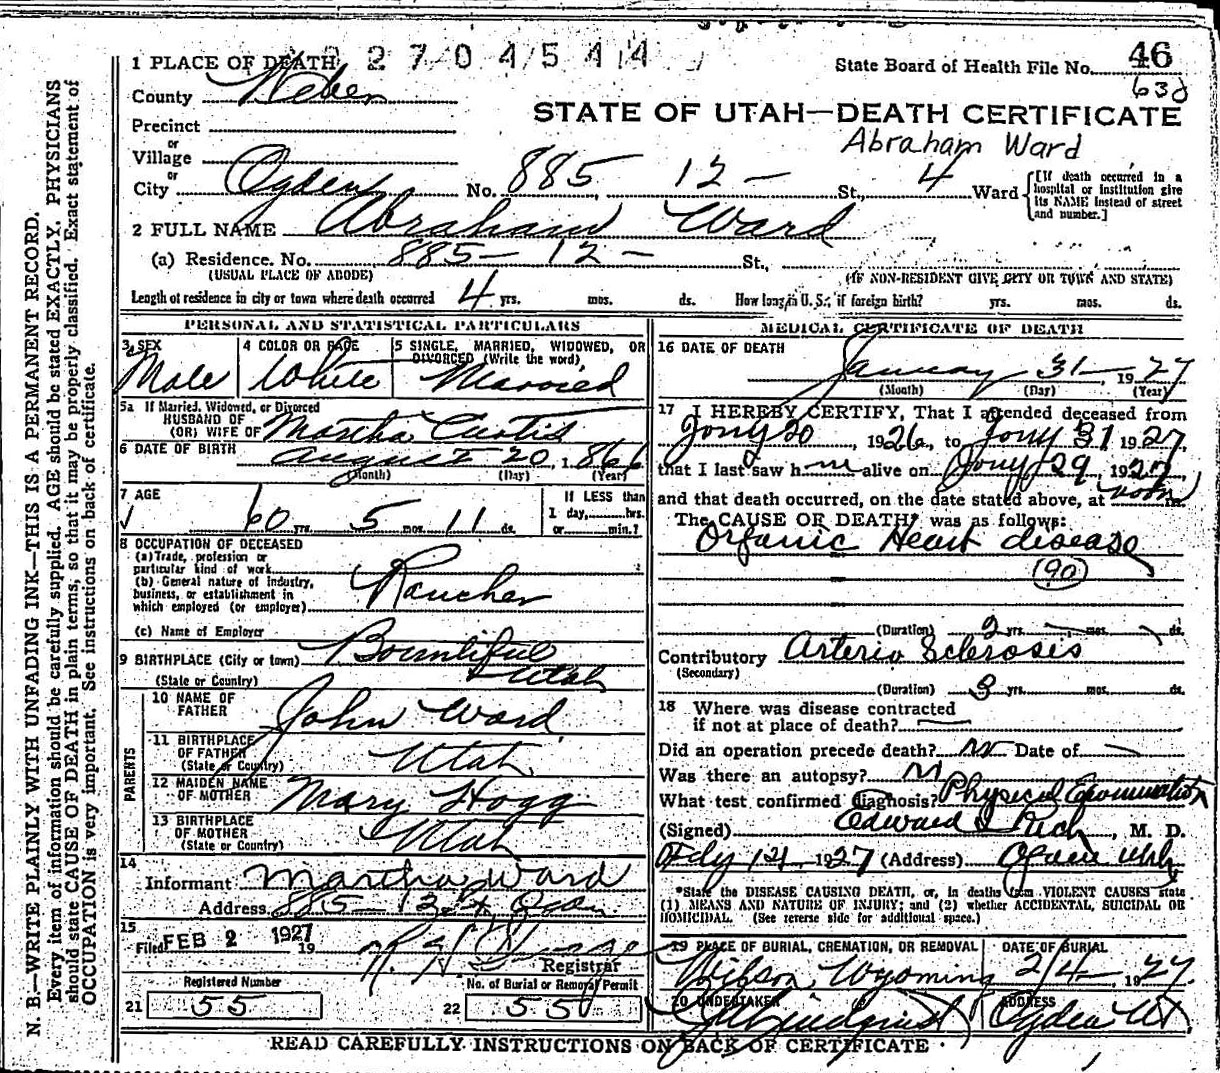 1 PLACE OF DEATH 2 2 7 0 4 5 4 4
State Board of Health File No. 46
63d
County Weber
STATE OF UTAH—DEATH CERTIFICATE
Precinct
Abraham Ward
or
Village
or
City Ogden No. 885 12 - St., 4 Ward
[If death occurred in a hospital or institution give its NAME instead of street and number.]
2 FULL NAME Abraham Ward
(a) Residence. No. 885- 12- St.,
(USUAL PLACE OF ABODE) (IF NON-RESIDENT GIVE CITY OR TOWN AND STATE)
Length of residence in city or town where death occurred 4 yrs. mos. ds. How long in U. S., if foreign birth? yrs. mos. ds.
PERSONAL AND STATISTICAL PARTICULARS
3 SEX Male
4 COLOR OR RACE White
5 SINGLE, MARRIED, WIDOWED, OR DIVORCED (Write the word) Married
5a If Married, Widowed, or Divorced
HUSBAND OF
(OR) WIFE OF Martha Curtis
6 DATE OF BIRTH August 20, 1866
(Month) (Day) (Year)
7 AGE 60 yrs. 5 mos. 11 ds.
If LESS than
1 day, hrs.
or min.?
8 OCCUPATION OF DECEASED
(a) Trade, profession or
particular kind of work
(b) General nature of industry,
business, or establishment in
which employed (or employer) Rancher
(c) Name of Employer
9 BIRTHPLACE (City or town) Bountiful
(State or Country) Utah
PARENTS
10 NAME OF
FATHER John Ward
11 BIRTHPLACE
OF FATHER
(State or Country) Utah
12 MAIDEN NAME
OF MOTHER Mary Hogg
13 BIRTHPLACE
OF MOTHER
(State or Country) Utah
14
Informant Martha Ward
Address 885-12 St,
15
Filed FEB 2 1927 19
Registrar
Registered Number
21 55
No. of Burial or Removal Permit
22 55
MEDICAL CERTIFICATE OF DEATH
16 DATE OF DEATH
January 31-, 1927
(Month) (Day) (Year)
17 I HEREBY CERTIFY, That I attended deceased from
Jany 20, 1926, to Jany 31 1927
that I last saw h im alive on Jany 29, 1927
and that death occurred, on the date stated above, at noon m.
The CAUSE OR DEATH* was as follows:
Organic Heart disease
(90)
(Duration) 2 yrs. mos. ds.
Contributory Arterio Sclerosis
(Secondary)
(Duration) 3 yrs. mos. ds.
18 Where was disease contracted
if not at place of death?
Did an operation precede death? no Date of
Was there an autopsy? no
What test confirmed diagnosis? Physical Examination
(Signed) Edward I Rich, M. D.
1927 (Address) Ogden Utah
*State the DISEASE CAUSING DEATH, or, in deaths from VIOLENT CAUSES state
(1) MEANS AND NATURE OF INJURY; and (2) whether ACCIDENTAL, SUICIDAL OR
HOMICIDAL. (See reverse side for additional space.)
19 PLACE OF BURIAL, CREMATION, OR REMOVAL
DATE OF BURIAL
Wilson, Wyoming 2/4-, 1927
20 UNDERTAKER
ADDRESS
Lindquist Ogden Ut
READ CAREFULLY INSTRUCTIONS ON BACK OF CERTIFICATE
N. B.—WRITE PLAINLY WITH UNFADING INK—THIS IS A PERMANENT RECORD.
Every item of information should be carefully supplied. AGE should be stated EXACTLY. PHYSICIANS
should state CAUSE OF DEATH in plain terms, so that it may be properly classified. Exact statement of
OCCUPATION is very important. See instructions on back of certificate.